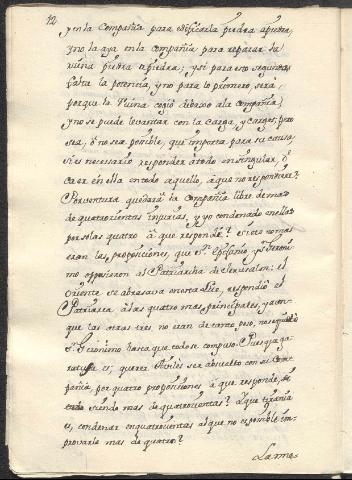 12
y en la Compañia para edificarla piedra apiedra,
y no la aya en la compañia para reparar su
ruina piedra apiedra; y si para eso segundo
falta la potencia, y no para lo primero, será,
porque la Ruina cogió debaxo ala compañia,
y no se puede levantar con la carga, y cargos, pero
sea, ò no sea posible, que importa para su causa,
si es necesario responder à todo en singular, ò
caer en ella en todo aquello, à que no respondiere?
Porventura quedarà la compañia libre de mas
de quatrocientas injurias, y yo condenado en ellas
por solas quatro à que responde? Siete nomas
eran las proposiciones, que Sn. Epifanio, y Sn. Geroni
mo opusieron al Patriarcha de Jerusalen: el
Oriente se abrasava en esta lid, respondió el
Patriarca à las quatro mas principales, y aun
que las otras tres no eran de tanto peso, no se quietó
Sn. Geronimo hasta que todo se compuso. Pues que ga
es, querer Achiles ser absuelto con su Com
pañia por quatro proposiciones à que responde,
siendo mas de quatrocientas? Y que tirania
es, condenar en quatrocientas al que no es posible im
provarle mas de quatro?